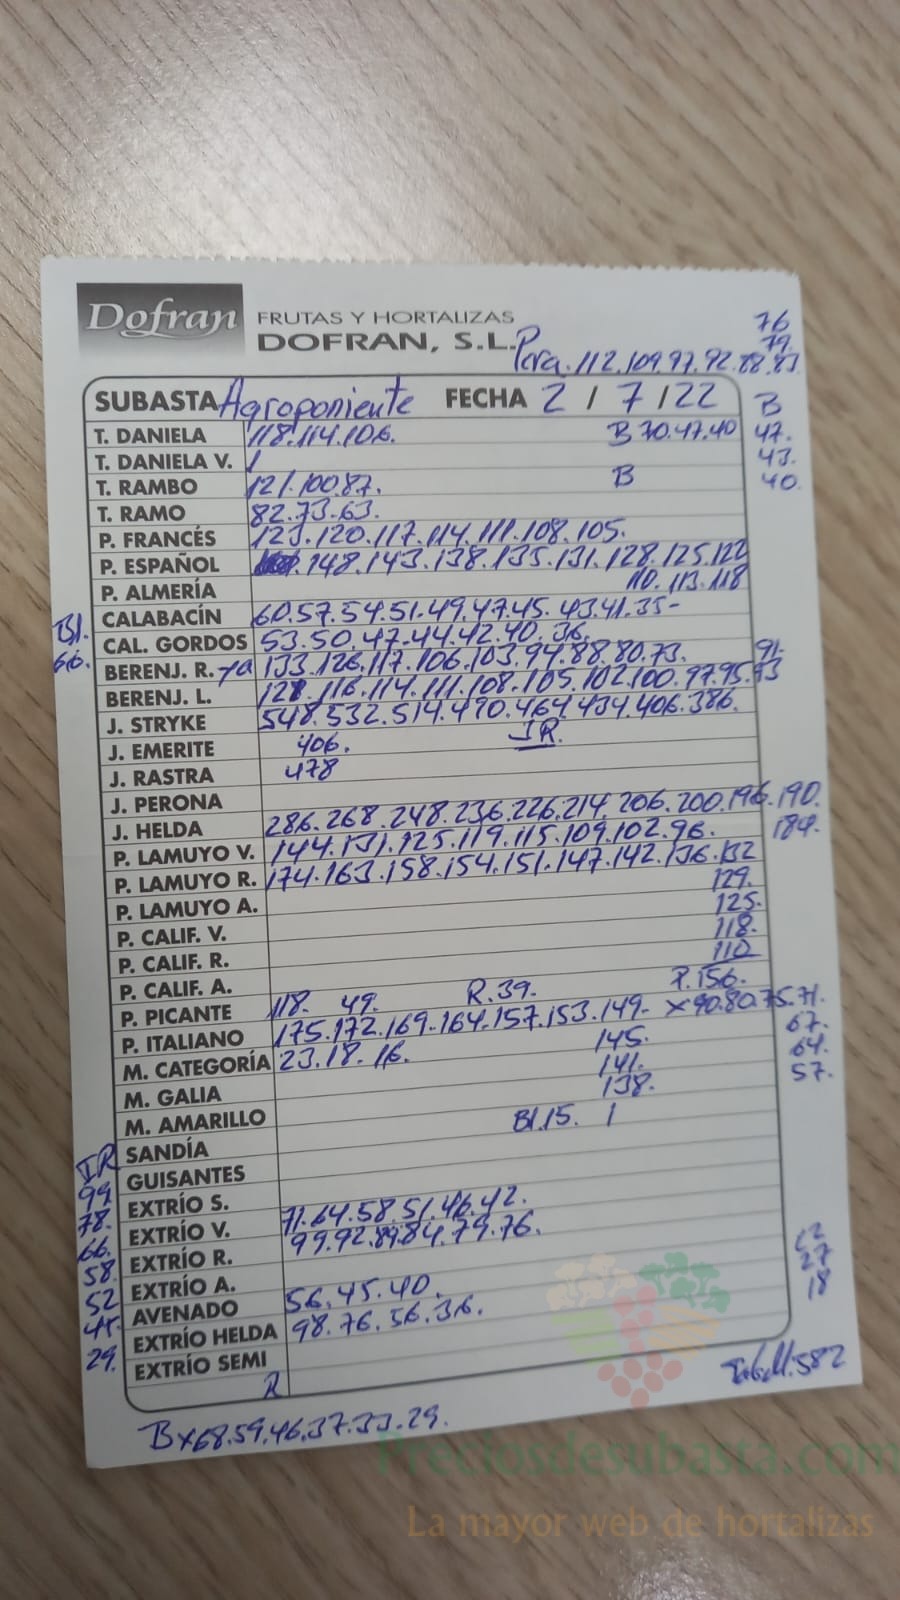 Dofran FRUTAS Y HORTALIZAS
DOFRAN, S.L.
76
79.
Pera. 112.109.97.92.88.83.
SUBASTA Agroponiente FECHA 2 / 7 / 22
B
47.
43.
40.
T. DANIELA 118.114.106. B 70.47.40
T. DANIELA V.
T. RAMBO 121.100.87. B
T. RAMO 82.73.63.
P. FRANCÉS 123.120.117.114.111.108.105.
P. ESPAÑOL 148.143.138.135.131.128.125.122
P. ALMERÍA 110.113.118
CALABACÍN 60.57.54.51.49.47.45.43.41.35-
Bl.
66.
CAL. GORDOS 53.50.47.44.42.40.36.
BERENJ. R. ya 133.126.117.106.103.94.88.80.73.
91.
BERENJ. L. 121.116.114.111.108.105.102.100.97.95.93
J. STRYKE 548.532.514.490.464.434.406.386.
J. EMERITE 406. JR.
J. RASTRA 478
J. PERONA
J. HELDA 286.268.248.236.226.214.206.200.196.190.
184.
P. LAMUYO V. 144.131.125.119.115.109.102.96.
P. LAMUYO R. 174.163.158.154.151.147.142.136.132
129.
P. LAMUYO A. 125.
P. CALIF. V. 118.
P. CALIF. R. 110
P. CALIF. A. P.156.
P. PICANTE 118. 49. R.39. x90.80.75.71.
P. ITALIANO 175.172.169.164.157.153.149.
67.
64.
57.
145.
141.
138.
M. CATEGORÍA 23.18.16.
M. GALIA
M. AMARILLO Bl.15.
SANDÍA
GUISANTES
JR
99
78.
66.
58.
52
45.
29.
EXTRÍO S. 71.64.58.51.46.42.
EXTRÍO V. 99.92.89.84.79.76.
EXTRÍO R.
EXTRÍO A.
AVENADO 56.45.40.
EXTRÍO HELDA 98.76.56.36.
EXTRÍO SEMI
27
18
R
Bx68.59.46.37.33.29.
Preciosdesubasta.com
La mayor web de hortalizas